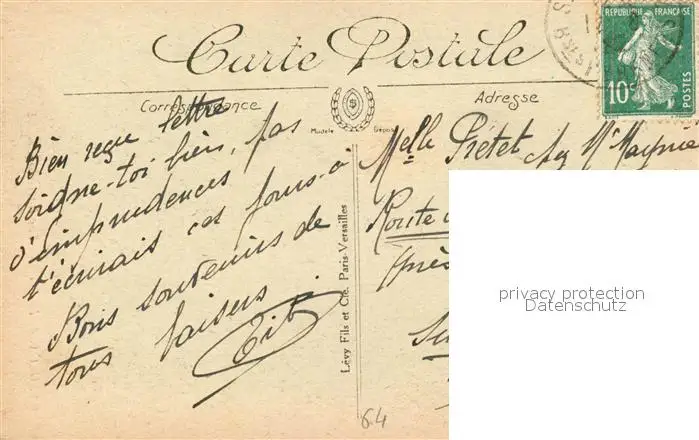 Carte Postale
RÉPUBLIQUE FRANÇAISE
10c
POSTES
Correspondance
Modèle Déposé
Adresse
Bien reçue lettre
soigne-toi bien, pas
d'imprudences
t'écrirais ces jours-ci
Bons souvenirs de
tous baisers
Lévy Fils et Cie, Paris-Versailles
Melle Pretet chez Mr
Route
(près
64
privacy protection
Datenschutz